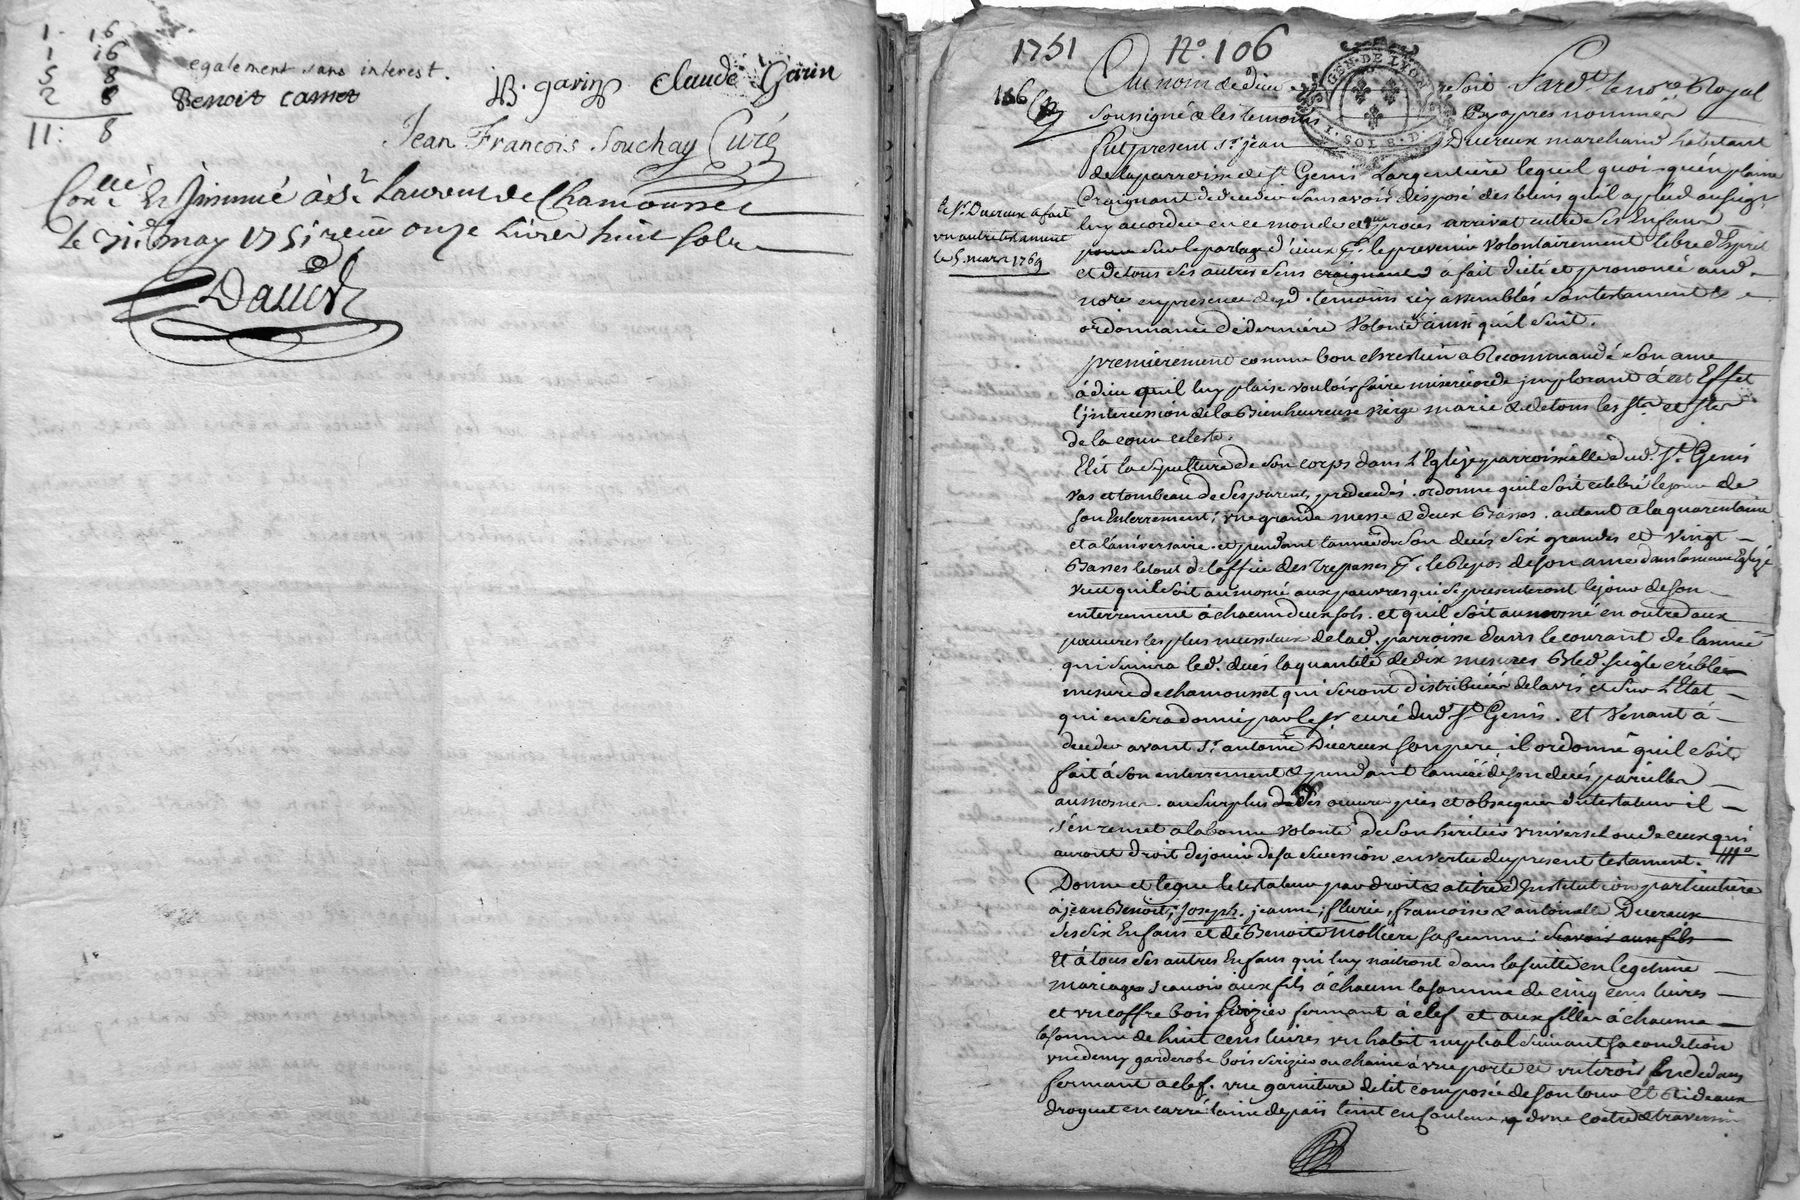 1. 16
1 16
5 8
2 8
11: 8
egalement sans interest.
Benoit Carret
JB. garin Claude Garin
Jean François Souchay Curé
Con.llé Et Insinué à St Laurent de Chamousset
le may 1751 reçu onze Livres huit sols
1751 N.o 106
106
GEN. DE LYON
1. SOL 8. D.
Au nom de dieu soit Pard.t le no.re Royal
soussigné & les temoins cy apres nommés
fut present Sr. jean Ducreux marchand habitant
de la parroisse de St. Genis Largentiere lequel quoi-qu'en plaine
craignant de deceder sans avoir disposé des biens qu'il a plu a dieu
luy accorder en ce monde et que proces arrivat entre ses Enfans
pour le partage d'iceux pr. le prevenir volontairement libre d'Esprit
et de tous ses autres sens craignant à fait dicté et prononcé aud.
no.re en presence desd. temoins icy assemblés son testament &
ordonnance de derniere volonté ainsi quil suit.
le Sr. Ducreux a fait
un autre testament
le 5. mars 1769
premierement comme bon chrestien a Recommandé son ame
à dieu quil luy plaise vouloir faire misericorde implorant à cet Effet
l'intercession de la Bienheureuse vierge marie & de tous les sts. et stes
de la cour celeste.
Elit la sepulture de son corps dans l'Eglise parroissialle dud. St. Genis
vas et tombeau de ses parents predecedés. ordonne quil soit celebré le jour de
son Enterrement; une grande messe & deux Basses. autant a la quarantaine
et a l'aniversaire. et pendant l'année de son decés six grandes et vingt
Basses le tout de l'office des trepasses pr. le Repos de son ame dans la meme Eglise
veut quil soit aumoné aux pauvres qui se presenteront le jour de son
enterrement à chacun deux sols. et quil soit aumoné en outre aux
pauvres les plus necessiteux de lad. parroisse dans le courant de l'année
qui suivra led. decés la quantité de dix mesures Bled. seigle crible
mesure de chamousset qui seront distribuées de lavis et sur l'Etat
qui en sera donné par le sr curé dud. St Genis. et venant à
deceder avant Sr. antoine Ducreux son pere, il ordonne quil soit
fait à son enterrement & pendant l'année de son decés pareilles
aumones. au surplus de ses oeuvres pies et obseques le testateur il
s'en remet a la bonne volonté de son heritier universel ou de ceux qui
auront droit de jouir de sa succession en vertu du present testament.
Donne et legue le testateur par droit & a titre d'Institution particuliere
à jean Benoit, Joseph. jeanne; flurie, francoise & antoinette Ducreux
ses six Enfans et de Benoite Molliere sa femme. scavoir aux fils
Et à tous ses autres Enfans qui luy naitront dans la suitte en legitime
mariage scavoir aux fils à chacun la somme de cinq cens livres
et un coffre bois serizier fermant à clef. et aux filles à chacune
la somme de huit cens livres un habit nuptial suivant sa condition
une demy garderobe bois serizier ou chaine à une porte et un tiroir au dedans
fermant a clef. une garniture de lit composée de son tour et Rideaux
droguet en carré laine de païs teint en couleur, d'une coetre & traversin